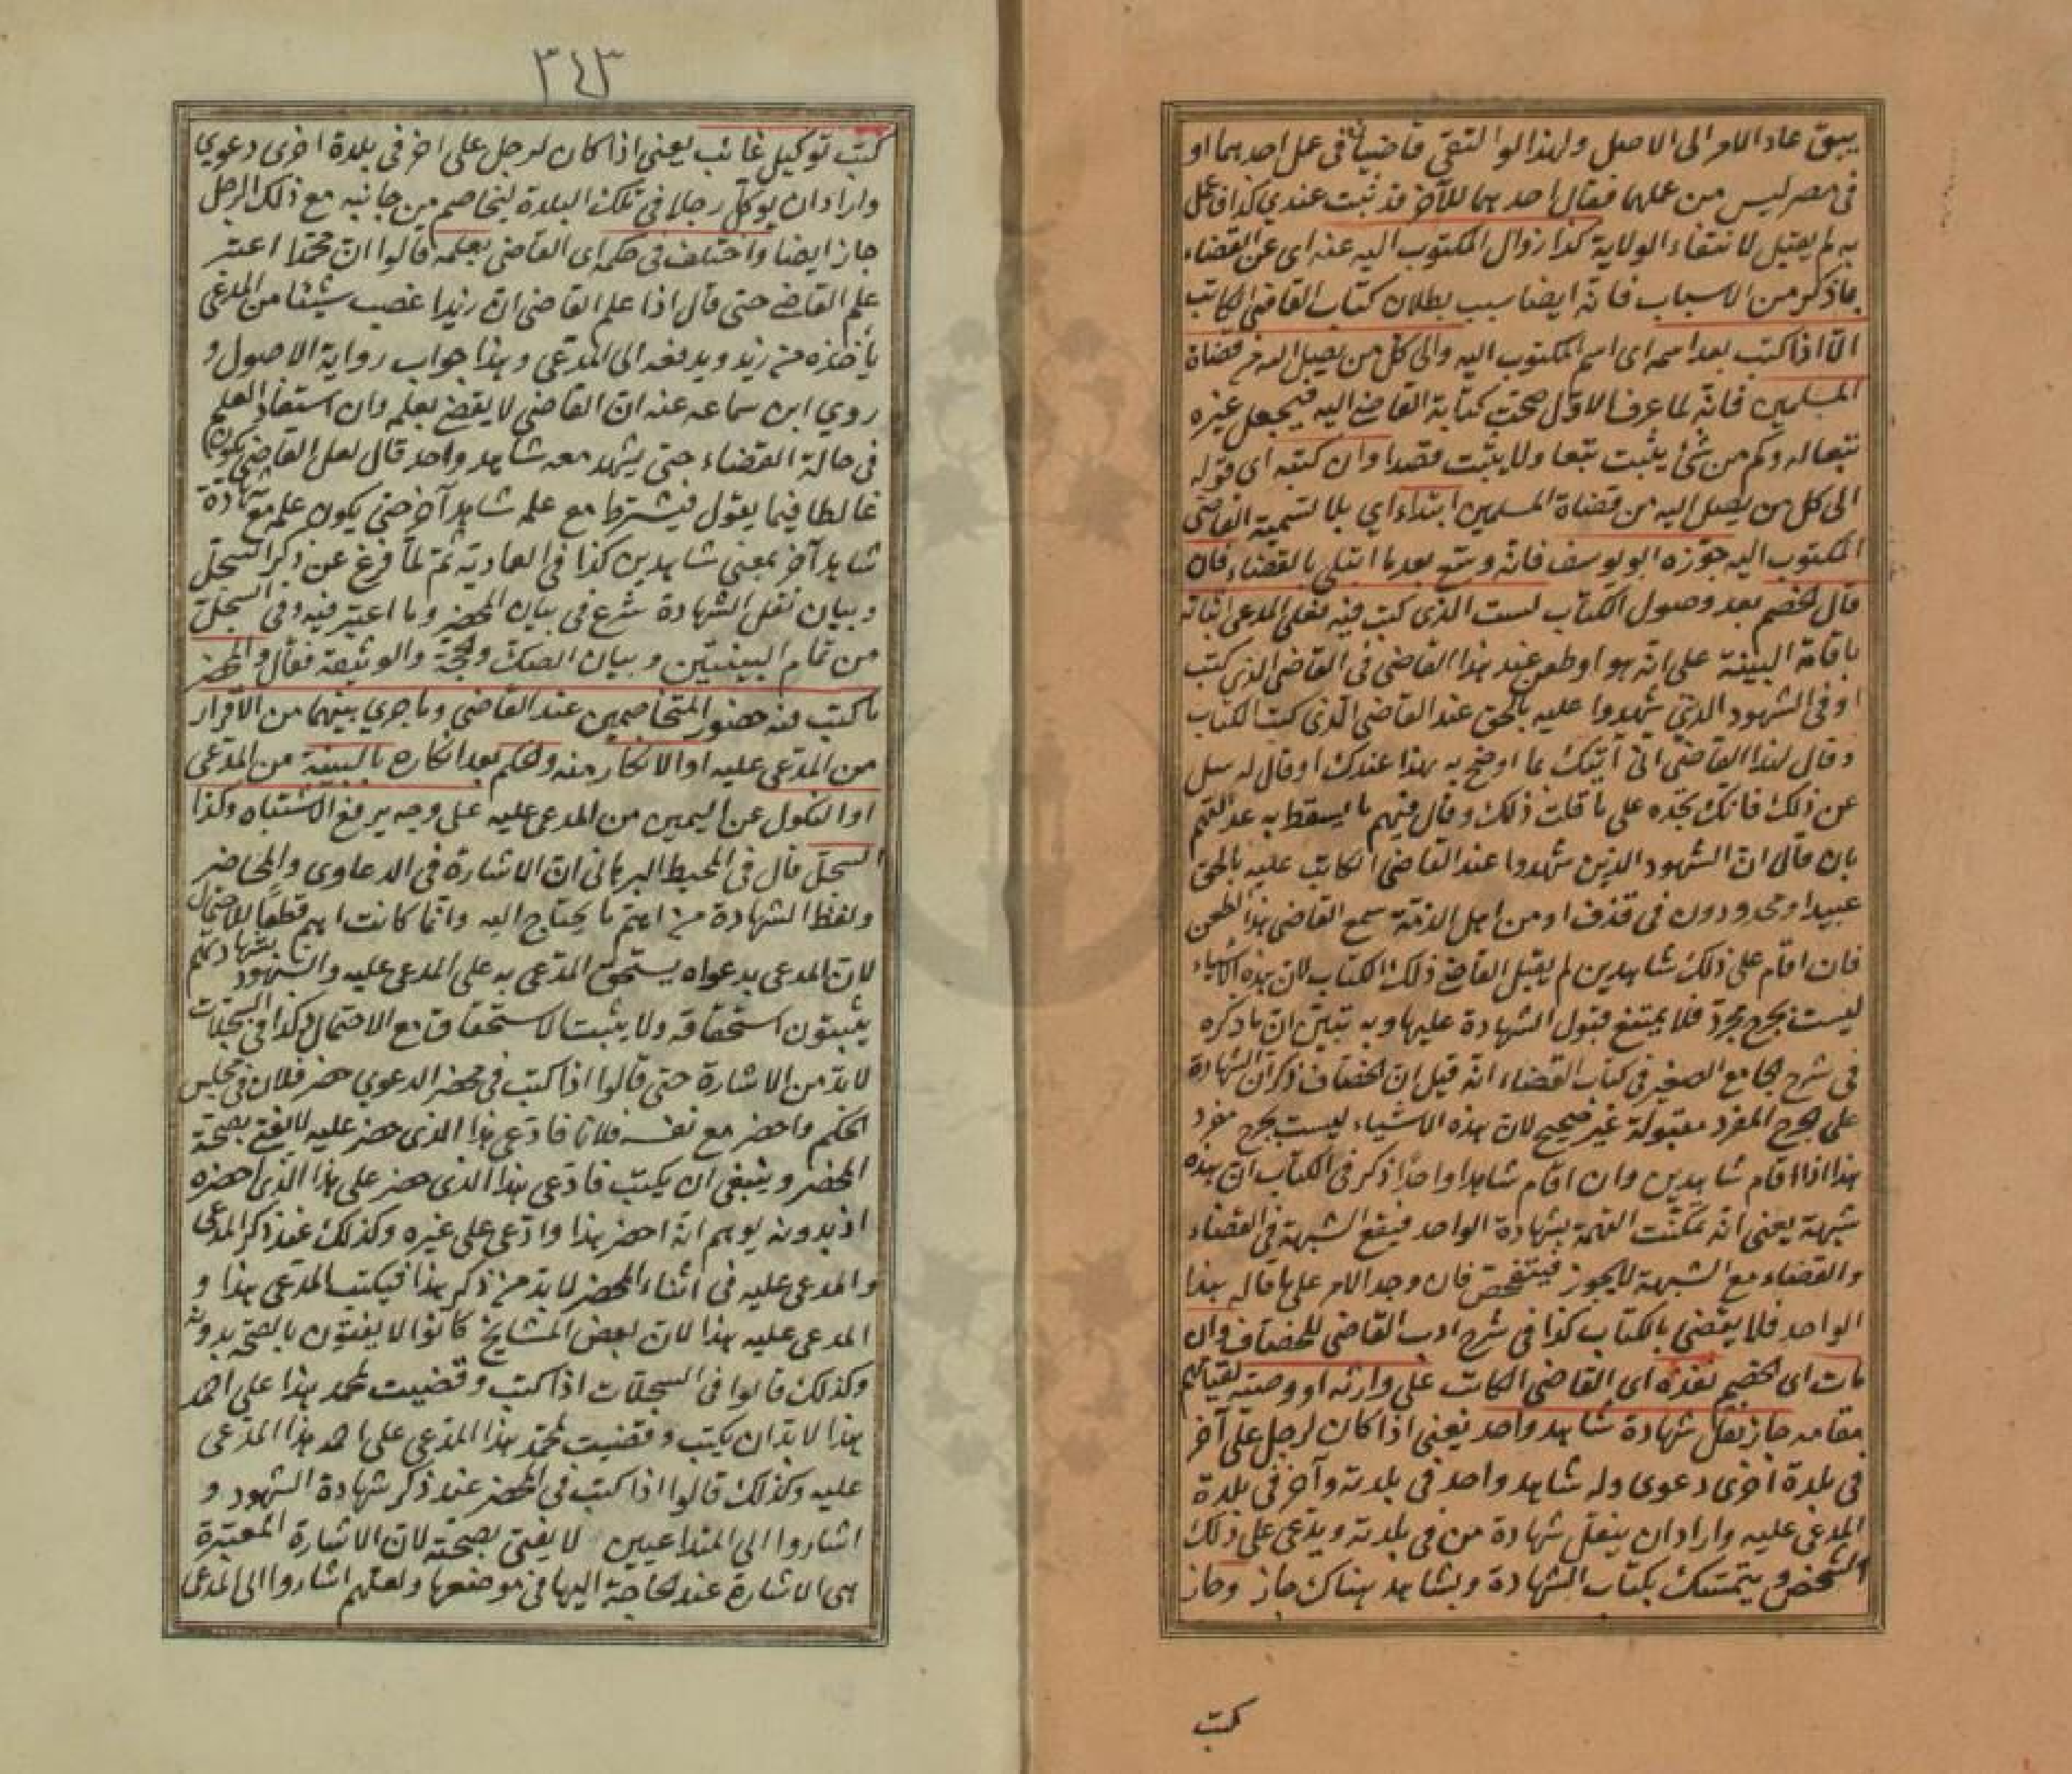 يبق عاد الامر الى الاصل ولهذا لو التقى قاضيان في عمل احدهما او
في مصر ليس من عملهما فقال احدهما للآخر قد ثبت عندي كذا فاعمل
به لم يقبل لانتفاء الولاية كذا زوال المكتوب اليه عنه اى عن القضاء
بما ذكر من الاسباب فانه ايضا سبب بطلان كتاب القاضي الكاتب
الا اذا كتب بعد اسمه اى اسم المكتوب اليه والى كل من يصل اليه من قضاة
المسلمين فانه لما عرف الاول صحت كتابة القاضي اليه فيجعل غيره
تبعا له وكم من شئ يثبت تبعا ولا يثبت قصدا وان كتبه اى قوله
الى كل من يصل اليه من قضاة المسلمين ابتداء اي بلا تسمية القاضي
المكتوب اليه جوزه ابو يوسف فانه وسع بعد ما ابتلى بالقضاء فان
قال الخصم بعد وصول الكتاب لست الذى كتب فيه فعلى المدعى اثباته
باقامة البينة على انه هو او طعن عند هذا القاضى في القاضى الذى كتب
او فى الشهود الذين شهدوا عليه بالحق عند القاضى الذى كتب الكتاب
وقال لهذا القاضى انى آتيك بما اوضح به هذا عندك او قال له سل
عن ذلك فانك تجده على ما قلت ذلك وقال فيهم ما يسقط به عدالتهم
بان قال ان الشهود الذين شهدوا عند القاضى الكاتب عليه بالحق
عبيد او محدودون فى قذف او من اهل الذمة سمع القاضى هذا الطعن
فان اقام على ذلك شاهدين لم يقبل القاضى ذلك الكتاب لان هذه الاشياء
ليست بجرح مجرد فلا يمتنع قبول الشهادة عليها وبه تبين ان ما ذكره
فى شرح الجامع الصغير فى كتاب القضاء انه قيل ان الخصاف ذكر ان الشهادة
على الجرح المفرد مقبولة غير صحيح لان هذه الاشياء ليست بجرح مفرد
هذا اذا اقام شاهدين وان اقام شاهدا واحدا ذكر فى الكتاب ان هذه
شبهة يعنى انه تمكنت التهمة بشهادة الواحد فيقع الشبهة فى القضاء
والقضاء مع الشبهة لا يجوز فيتفحص فان وجد الامر على ما قاله هذا
الواحد فلا يقضى بالكتاب كذا فى شرح ادب القاضى للخصاف وان
مات اى الخصم نفذه اى القاضى الكاتب على وارثه او وصيه لقيامهم
مقامه جاز نقل شهادة شاهد واحد يعنى اذا كان لرجل على آخر
فى بلدة اخرى دعوى وله شاهد واحد فى بلدته وآخر فى بلدة
المدعى عليه واراد ان ينقل شهادة من فى بلدته ويدعى على ذلك
الشخص ويتمسك بكتاب الشهادة وبشاهد هناك جاز وجاز
كتب
٣٤٣
كتب توكيل غائب يعنى اذا كان لرجل على اخر فى بلدة اخرى دعوي
واراد ان يوكل رجلا فى تلك البلدة ليخاصم من جانبه مع ذلك الرجل
جاز ايضا واختلف فى حكمه اى القاضى بعلمه قالوا ان محمدا اعتبر
علم القاضى حتى قال اذا علم القاضى ان زيدا غصب شيئا من المدعى
يأخذه من زيد ويدفعه الى المدعى وهذا جواب رواية الاصول و
روي ابن سماعه عنه ان القاضى لا يقضى بعلمه وان استفاد العلم
فى حالة القضاء حتى يشهد معه شاهد واحد قال لعل القاضى يكون
غالطا فيما يقول فيشترط مع علمه شاهد آخر حتى يكون علمه مع شهادة
شاهد آخر بمعنى شاهدين كذا فى العمادية ثم لما فرغ عن ذكر السجل
وبيان نقل الشهادة شرع فى بيان المحضر وما اعتبر فيه وفى السجلات
من تمام البينتين وبيان الصك والحجة والوثيقة فقال والمحضر
ما كتب فيه حضور المتخاصمين عند القاضى وما جرى بينهما من الاقرار
من المدعى عليه او الانكار منه والحكم بعد انكاره بالبينة من المدعى
او النكول عن اليمين من المدعى عليه على وجه يرفع الاشتباه وكذا
السجل قال فى المحيط البرهانى ان الاشارة فى الدعاوى والمحاضر
ولفظ الشهادة من اهم ما يحتاج اليه وانما كانت اهم قطعا للاحتمال
لان المدعى بدعواه يستحق المدعى به على المدعى عليه والشهود بشهادتهم
يثبتون استحقاقه ولا يثبت الاستحقاق مع الاحتمال وكذا فى السجلات
لابد من الاشارة حتى قالوا اذا كتب فى محضر الدعوى حضر فلان فى مجلس
الحكم واحضر مع نفسه فلانا فادعى هذا الذى حضر عليه لا يفتى بصحة
المحضر وينبغى ان يكتب فادعى هذا الذى حضر على هذا الذى احضره
اذ بدونه يوهم انه احضر هذا وادعى على غيره وكذلك عند ذكر المدعى
والمدعى عليه فى اثناء المحضر لابد من ذكر هذا فيكتب المدعى هذا و
المدعى عليه هذا لان بعض المشايخ كانوا لا يفتون بالصحة بدونه
وكذلك قالوا فى السجلات اذا كتب وقضيت لمحمد هذا على احمد
هذا لابد ان يكتب وقضيت لمحمد هذا المدعى على احمد هذا المدعى
عليه وكذلك قالوا اذا كتب فى المحضر عند ذكر شهادة الشهود و
اشاروا الى المتداعيين لا يفتى بصحته لان الاشارة المعتبرة
هى الاشارة عند الحاجة اليها فى موضعها ولعلهم اشاروا الى المدعى